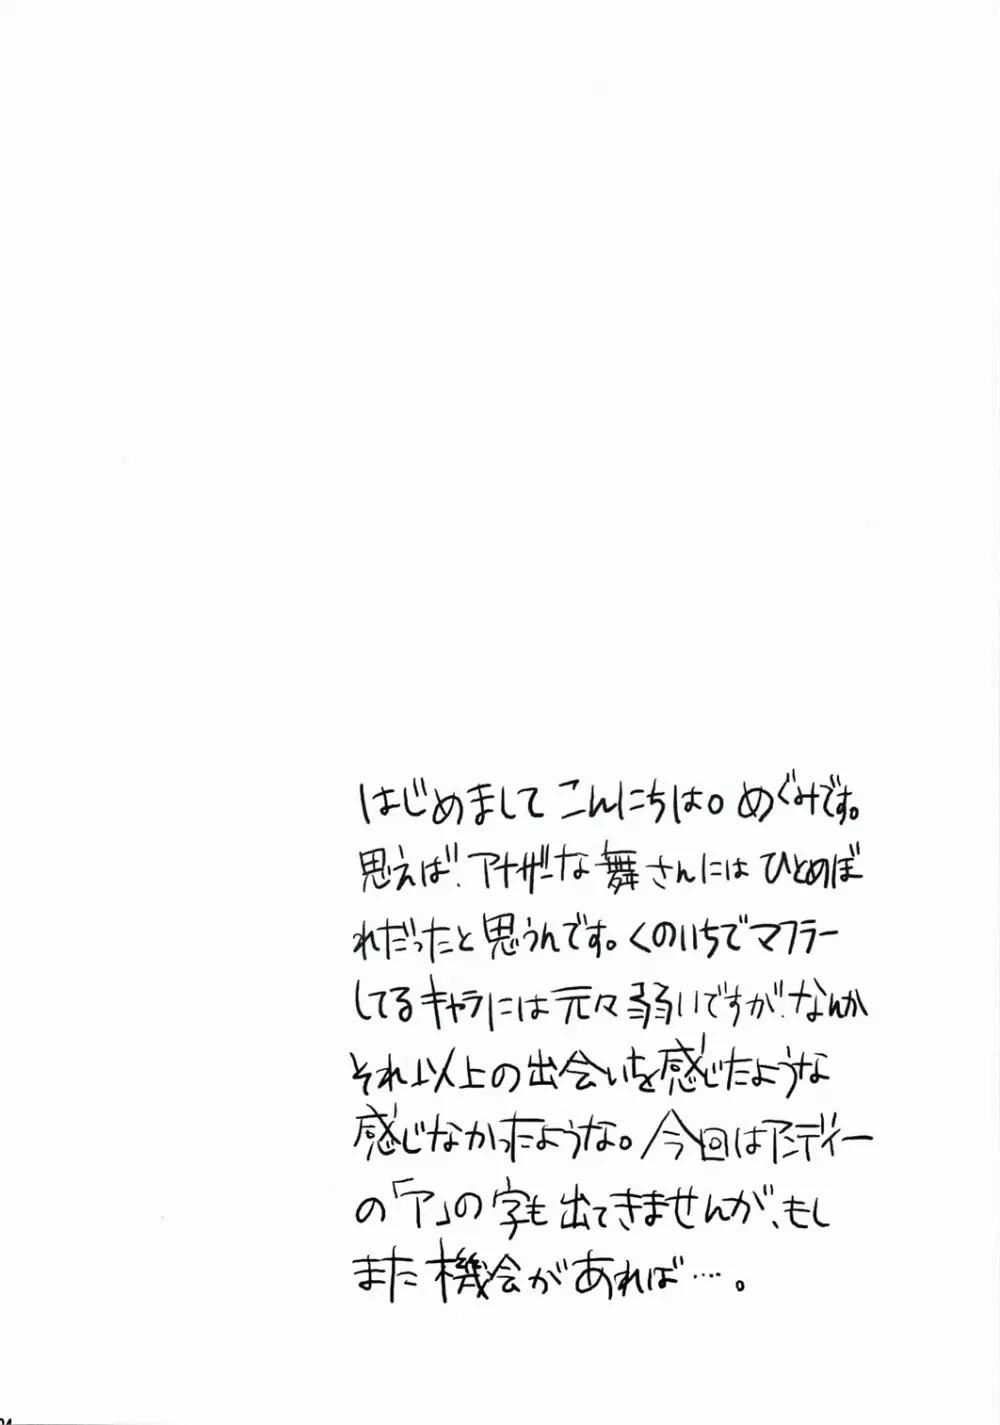 はじめまして こんにちは。めぐみです。
思えば、アナザーな舞さんにはひとめぼ
れだったと思うんです。くのいちでマフラー
してるキャラには元々弱いですが、なんか
それ以上の出会いを感じたような
感じなかったような。今回はアンディー
の「ア」の字も出てきませんが、もし
また機会があれば…。